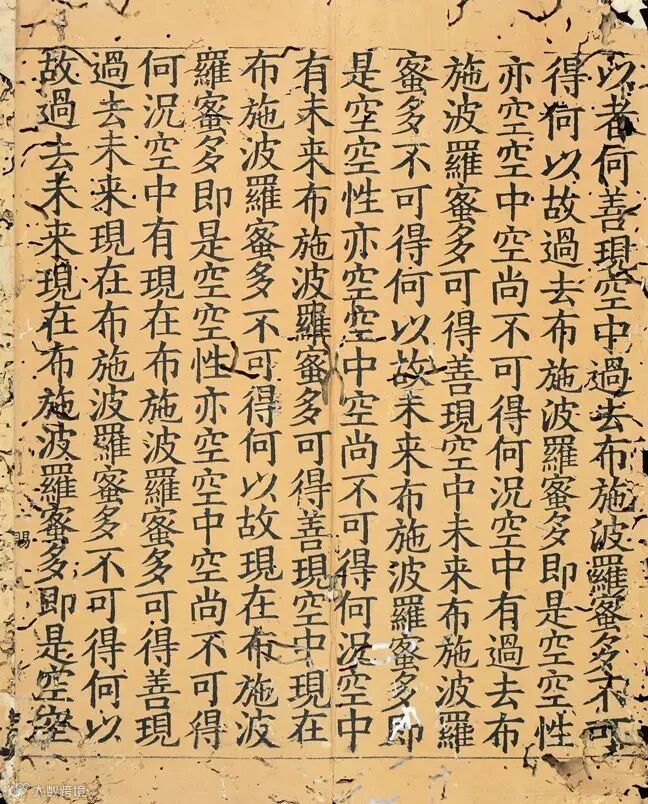 以者何善現空中過去布施波羅蜜多不可
得何以故過去布施波羅蜜多即是空空性
亦空空中空尚不可得何況空中有過去布
施波羅蜜多可得善現空中未来布施波羅
蜜多不可得何以故未来布施波羅蜜多即
是空空性亦空空中空尚不可得何況空中
有未来布施波羅蜜多可得善現空中現在
布施波羅蜜多不可得何以故現在布施波
羅蜜多即是空空性亦空空中空尚不可得
何況空中有現在布施波羅蜜多可得善現
過去未来現在布施波羅蜜多不可得何以
故過去未来現在布施波羅蜜多即是空空
大数跨境